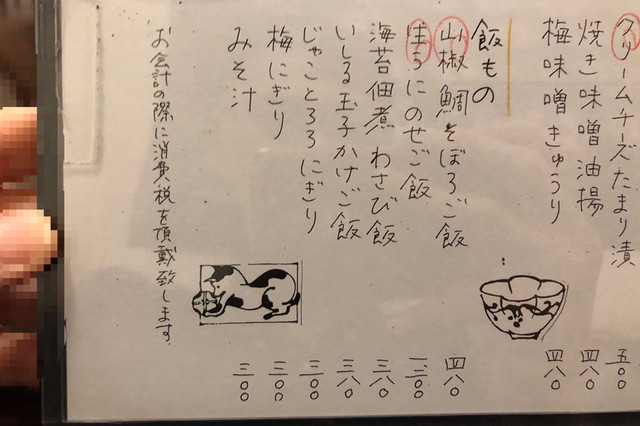 クリームチーズたまり漬 五〇〇
焼き味噌油揚 四八〇
梅味噌きゅうり 四八〇
飯もの
山椒鯛そぼろご飯 四八〇
生うにのせご飯 一二〇〇
海苔佃煮わさび飯 三八〇
いしる玉子かけご飯 三八〇
じゃことろろにぎり 三〇〇
梅にぎり 三〇〇
みそ汁 三〇〇
お会計の際に消費税を頂戴致します。